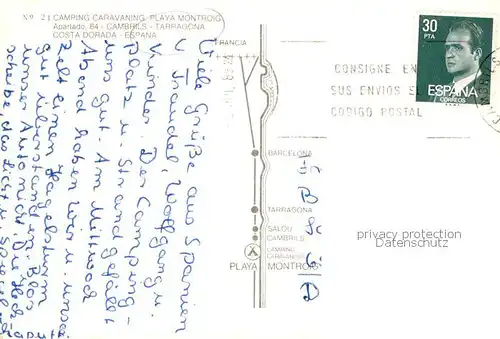 Nº 21 CAMPING CARAVANING, PLAYA MONTROIG
Apartado, 84 - CAMBRILS - TARRAGONA
COSTA DORADA - ESPAÑA
FRANCIA
BARCELONA
TARRAGONA
SALOU
CAMBRILS
CAMPING
CARAVANING
PLAYA MONTROIG
30
PTA
ESPAÑA
CORREOS
CONSIGNE EN
SUS ENVIOS EL
CODIGO POSTAL
Viele Grüße aus Spanien
Traudel, Wolfgang u.
Kinder. Der Camping-
platz u. Strand gefällt
uns gut. Am Mittwoch
Abend haben wir u. unser
Zelt einen Hagelsturm
gut überstanden. Blos
unser Auto nicht. Die Heck-
scheibe, das Licht u.
privacy protection
Datenschutz